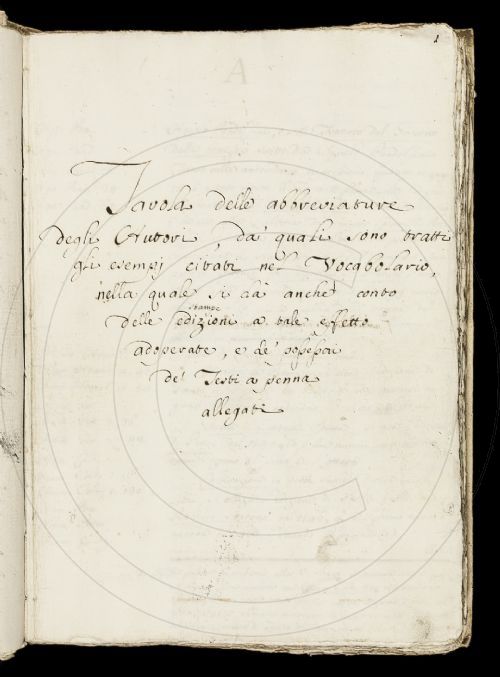 1
A
Tavola delle abbreviature
degli Autori, da' quali sono tratti
gli esempj citati nel Vocabolario,
nella quale si dà anche conto
stampe
delle edizioni a tale effetto
adoperate, e de' possessori
de' Testi a penna
allegati